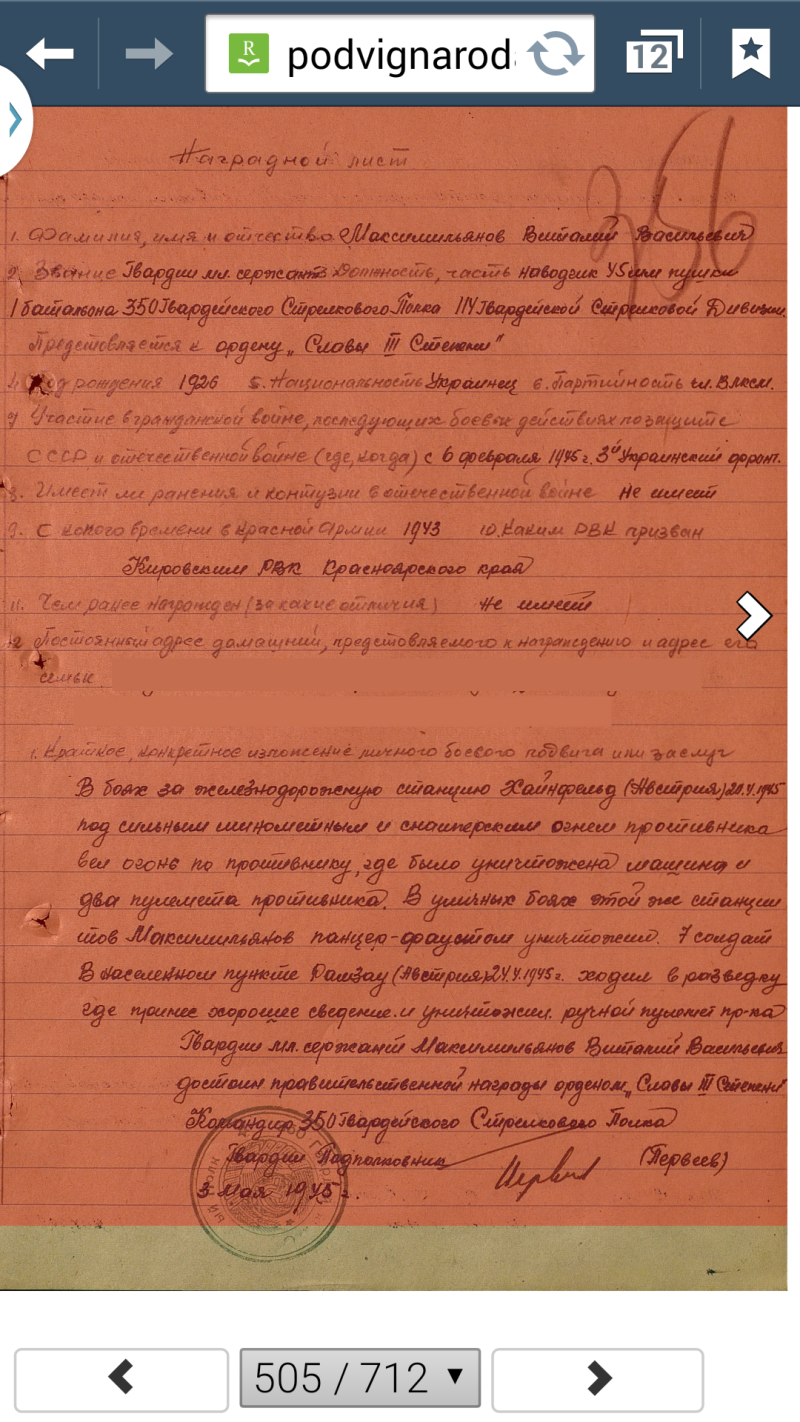 podvignarod
12
Наградной лист
356
1. Фамилия, имя и отчество Максимильянов Виталий Васильевич
2. Звание Гвардии мл. сержант Должность, часть наводчик 45мм пушки
1 батальона 350 Гвардейского Стрелкового Полка 114 Гвардейской Стрелковой Дивизии.
Представляется к ордену „Славы III Степени"
4. Год рождения 1926 5. Национальность Украинец 6. Партийность чл. Влксм.
7 Участие в гражданской войне, последующих боевых действиях по защите
СССР и отечественной войне (где, когда) с 6 февраля 1945 г. 3й Украинский фронт.
8. Имеет ли ранения и контузии в отечественной войне не имеет
9. С какого времени в Красной Армии 1943 10. Каким РВК призван
Кировским РВК Красноярского края
11. Чем ранее награжден (за какие отличия) не имеет
12 Постоянный адрес домашний, представляемого к награждению и адрес его
семьи
1. Краткое, конкретное изложение личного боевого подвига или заслуг
В боях за железнодорожную станцию Хайнфельд (Австрия) 1945
под сильным минометным и снайперским огнем противника
вел огонь по противнику, где было уничтожена машина и
два пулемета противника. В уличных боях этой же станции
тов Максимильянов панцер-фаустом уничтожил 7 солдат
В населенном пункте Рамзау (Австрия) 24.4.1945 г. ходил в разведку
где принес хорошие сведение и уничтожил ручной пулемет пр-ка
Гвардии мл. сержант Максимильянов Виталий Васильевич
достоин правительственной награды орденом „Славы III Степени"
Командир 350 Гвардейского Стрелкового Полка
Гвардии Подполковник (Первеев)
3 Мая 1945 г.
505 / 712